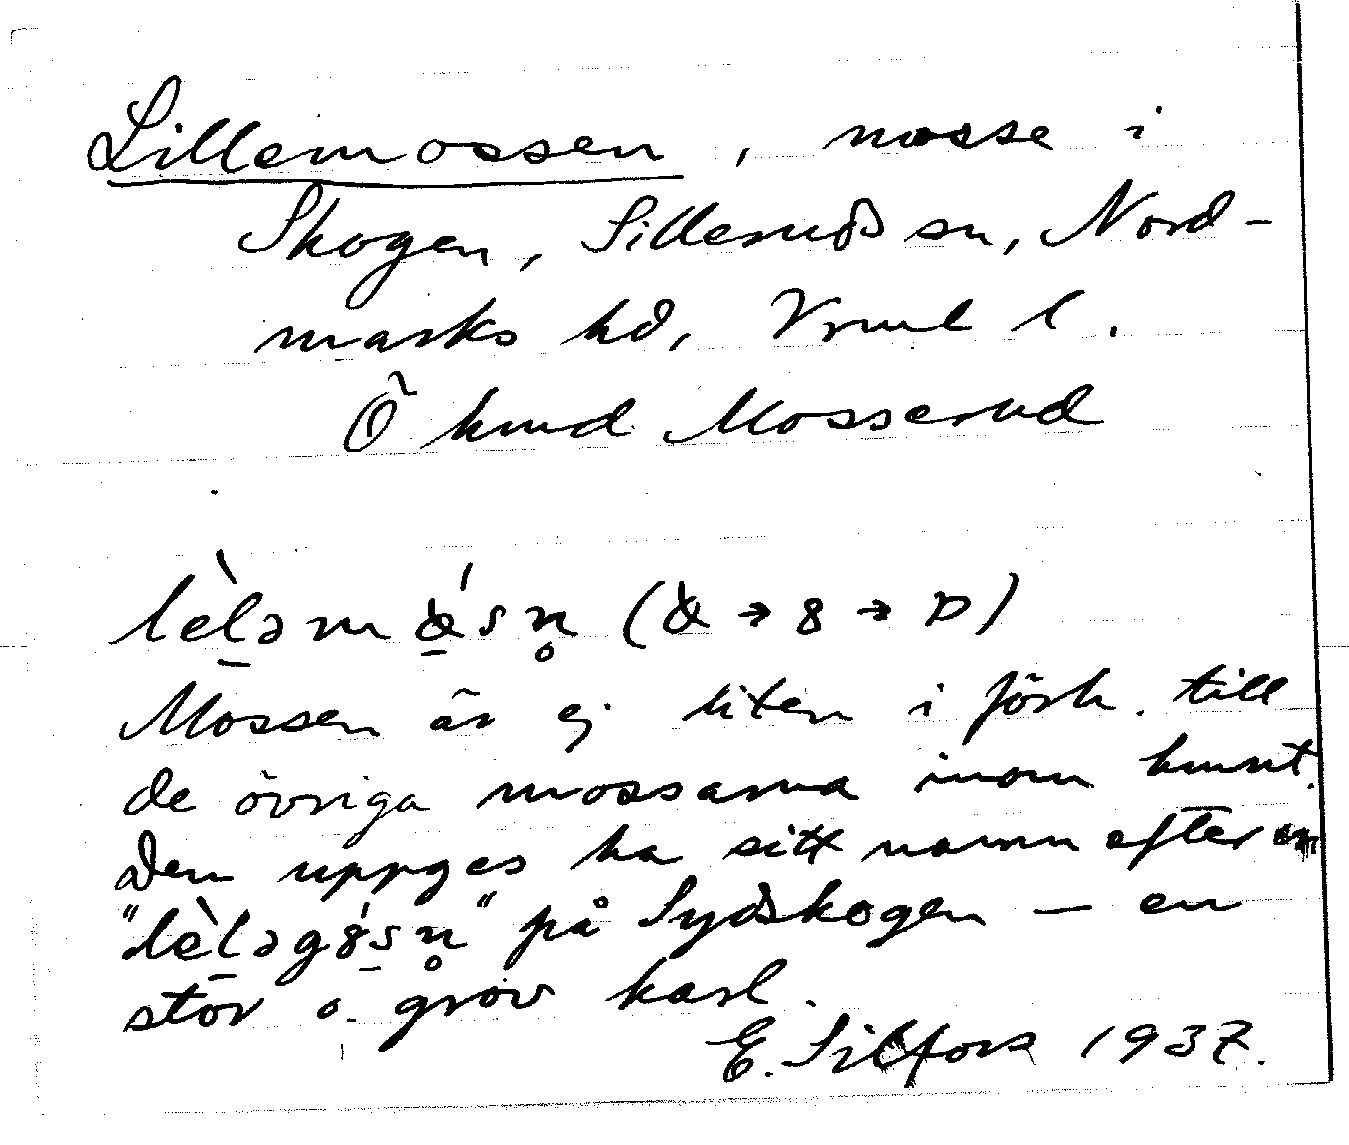 Lillemossen, mosse i
Skogen, Silleruds sn, Nord-
marks hd, Vrml l.
Ö hmd Mosserud
lèl̠əm s n̥ ( → 8 → )
Mossen är ej liten i förh. till
de övriga mossarna inom hmnt.
Den uppges ha sitt namn efter en
"lèl̠əg8́s̠n̥" på Sydskogen – en
stor o. grov karl.
E. Silfors 1937.